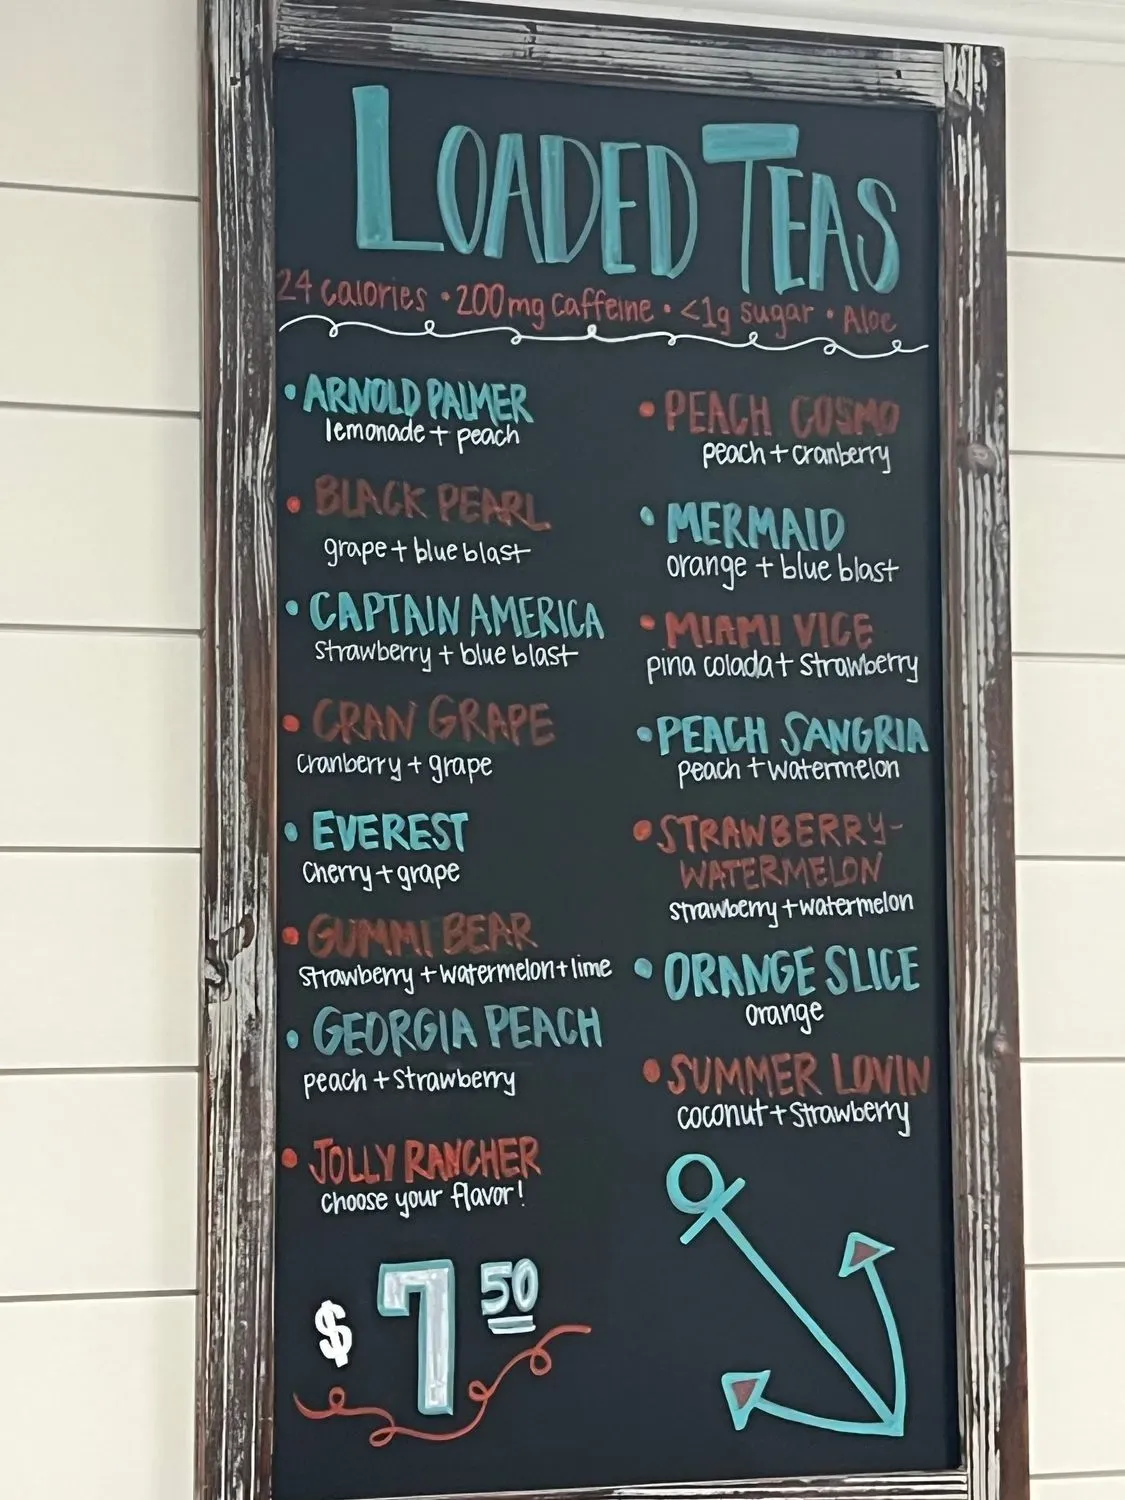 LOADED TEAS
24 calories • 200mg caffeine • <1g sugar • Aloe
• ARNOLD PALMER
lemonade + peach
• BLACK PEARL
grape + blue blast
• CAPTAIN AMERICA
strawberry + blue blast
• CRAN GRAPE
cranberry + grape
• EVEREST
Cherry + grape
• GUMMI BEAR
strawberry + watermelon + lime
• GEORGIA PEACH
peach + strawberry
• JOLLY RANCHER
choose your flavor!
$7 50
• PEACH COSMO
peach + cranberry
• MERMAID
orange + blue blast
• MIAMI VICE
pina colada + strawberry
• PEACH SANGRIA
peach + watermelon
• STRAWBERRY-
WATERMELON
strawberry + watermelon
• ORANGE SLICE
orange
• SUMMER LOVIN
coconut + strawberry